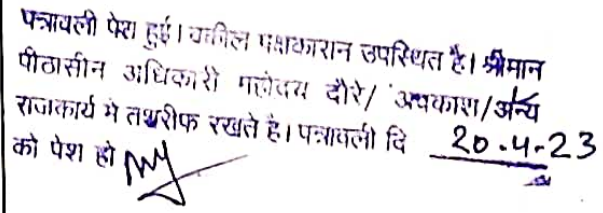 पत्रावली पेश हुई। वकील पक्षकारान उपस्थित है। श्रीमान
पीठासीन अधिकारी महोदय दौरे/ अवकाश/अन्य
राजकार्य मे तशरीफ रखते है। पत्रावली दि 20.4-23
को पेश हो